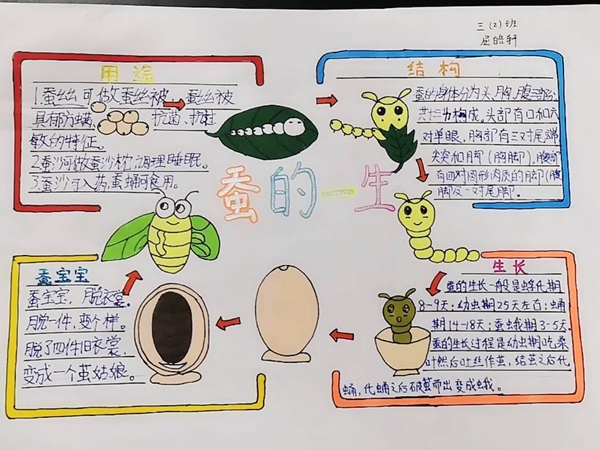 三(2)班
屈皓轩
用途
1.蚕丝可做蚕丝被,蚕丝被
具有防螨、抗菌、抗过
敏的特征。
2.蚕沙可做蚕沙枕,调理睡眠。
3.蚕沙可入药,蚕蛹可食用。
结构
蚕的身体分为头,胸,腹三部分
共十三节构成,头部有口和六
对单眼,胸部有三对尾端
尖突和脚(胸脚),腹部
有四对圆形肉质的脚(腹
脚及一对尾脚.
蚕的一生
蚕宝宝
蚕宝宝,脱衣裳,
脱一件,变个样。
脱了四件旧衣裳,
变成一个茧姑娘。
生长
蚕的生长一般是孵化期
8-9天;幼虫期25天左右;蛹
期14-18天;蚕蛾期3-5天
蚕的生长过程是幼虫期吃桑
叶然后吐丝作茧,结茧之后化
蛹,化蛹之后破茧而出变成蛾。